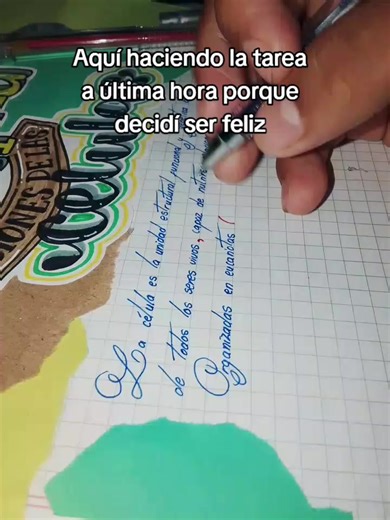 Aquí haciendo la tarea
a última hora porque
decidí ser feliz
IONES DE LAS
Células
La célula es la unidad estructural, funcional
de todos los seres vivos, capaz de nutrir
Organizadas en eucariotas (